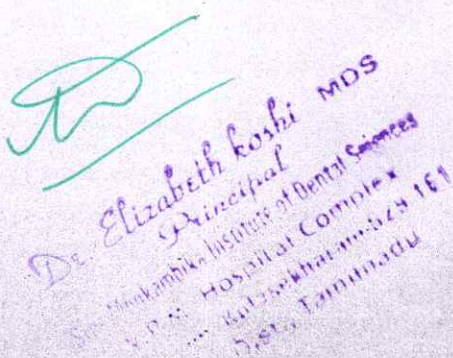 Dr. Elizabeth Koshi MDS
Principal
Sree Mookambika Institute of Dental Sciences
V.P.M. Hospital Complex
Kulasekharam-629 161
Dist, Tamilnadu